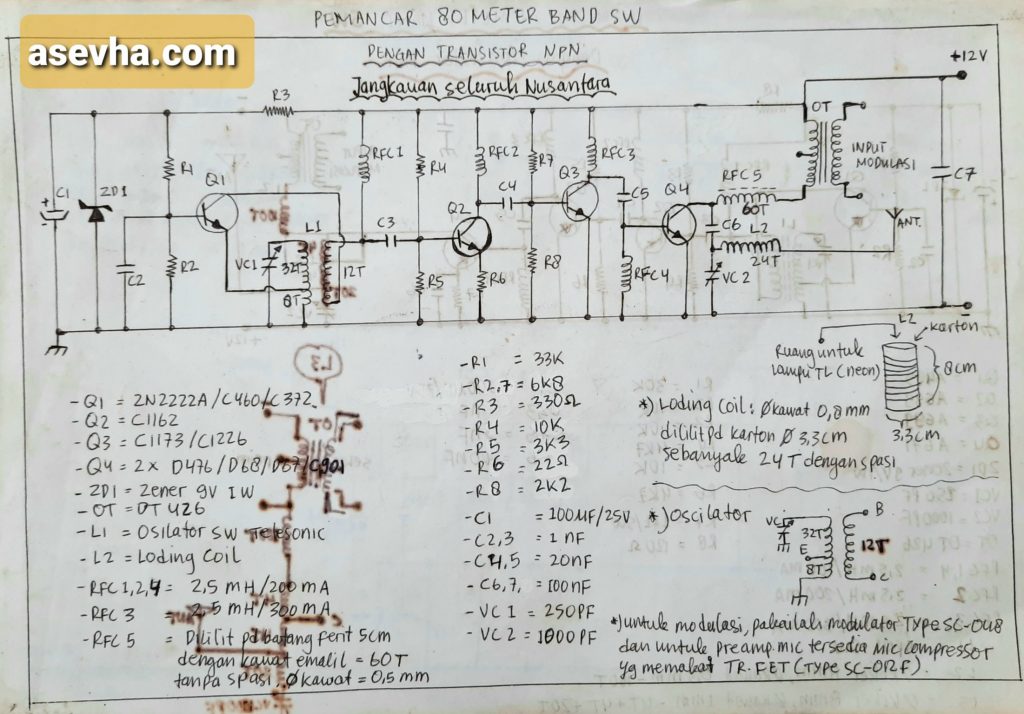 PEMANCAR 80 METER BAND SW
asevha.com
DENGAN TRANSISTOR NPN
Jangkauan seluruh Nusantara
+12V
R3
OT
RFC1
R4
RFC2
R7
RFC3
INPUT
MODULASI
C1
ZD1
R1
Q1
C4
Q3
C5
Q4
RFC5
60T
C7
L1
C3
Q2
C6
L2
ANT.
C2
R2
VC1
32T
12T
8T
R5
R6
R8
RFC4
24T
VC2
L2
karton
Ruang untuk
lampu TL (neon)
8cm
3,3cm
L3
OT
-Q1 = 2N2222A/C460/C372
-Q2 = C1162
-Q3 = C1173/C1226
-Q4 = 2x D476/D68/D67/C901
-ZD1 = Zener 9V 1W
-OT = OT 426
-L1 = Osilator SW Telesonic
-L2 = Loding Coil
-RFC 1,2,4 = 2,5 mH/200 mA
-RFC 3 = 2,5 mH/300 mA
-RFC 5 = Dililit pd batang ferit 5cm
dengan kawat emalil = 60T
tanpa spasi, Ø kawat = 0,5 mm
-R1 = 33K
-R2,7 = 6K8
-R3 = 330Ω
-R4 = 10K
-R5 = 3K3
-R6 = 22Ω
-R8 = 2K2
-C1 = 100MF/25V
-C2,3 = 1 nF
-C4,5 = 20nF
-C6,7, = 100nF
-VC 1 = 250PF
-VC 2 = 1000PF
*) Loding Coil: Ø kawat 0,8 mm
dililit pd karton Ø 3,3cm
sebanyak 24 T dengan spasi
*) Oscilator
VC
32T
E
8T
12T
B
C
*) untuk modulasi, pakailah modulator TYPE SC-048
dan untuk preamp.mic tersedia mic compressor
yg memakai TR. FET (TYPE SC-012F).